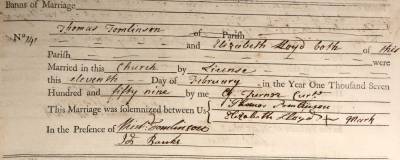 Banns of Marriage
No 241 Thomas Tomlinson of Parish
and Elizabeth Lloyd both of this
Parish were
Married in this Church by License
this eleventh Day of February in the Year One Thousand Seven
Hundred and fifty nine by me Curte
This Marriage was solemnized between Us Thomas Tomlinson
Elizabeth Lloyd + Mark
In the Presence of Tomlinson
Banks